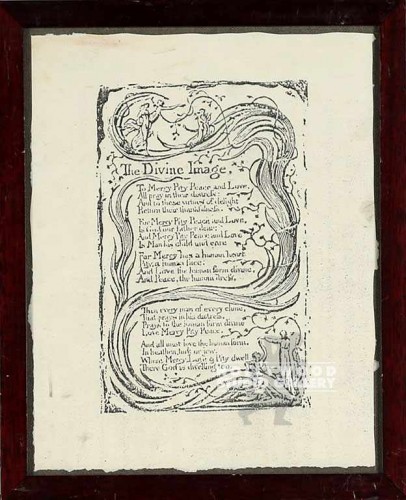 The Divine Image,
To Mercy Pity Peace and Love,
All pray in their distress:
And to these virtues of delight
Return their thankfulness.
For Mercy Pity Peace and Love,
Is God our father dear:
And Mercy Pity Peace and Love,
Is Man his child and care.
For Mercy has a human heart
Pity, a human face:
And Love, the human form divine,
And Peace, the human dress.
Then every man of every clime,
That prays in his distress,
Prays to the human form divine
Love Mercy Pity Peace.
And all must love the human form,
In heathen, turk or jew.
Where Mercy, Love & Pity dwell
There God is dwelling too
GALLERY